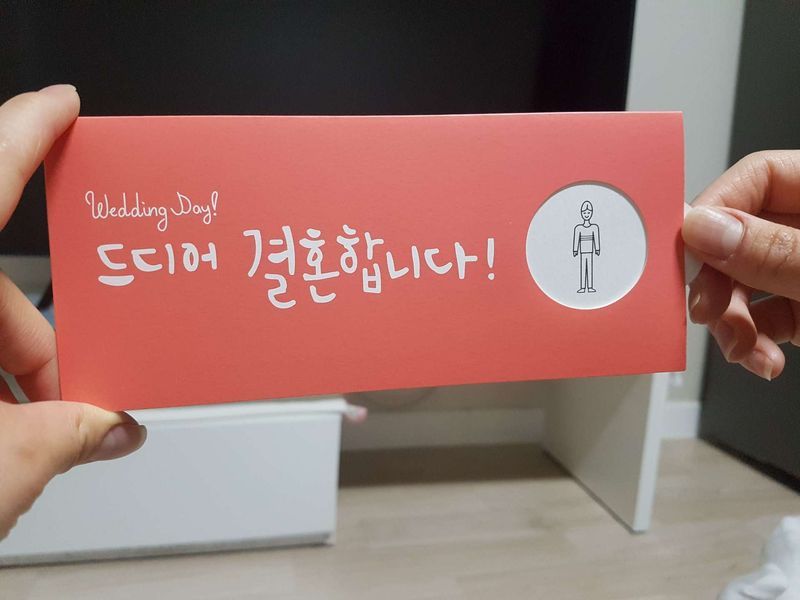 Wedding Day!
드디어 결혼합니다!